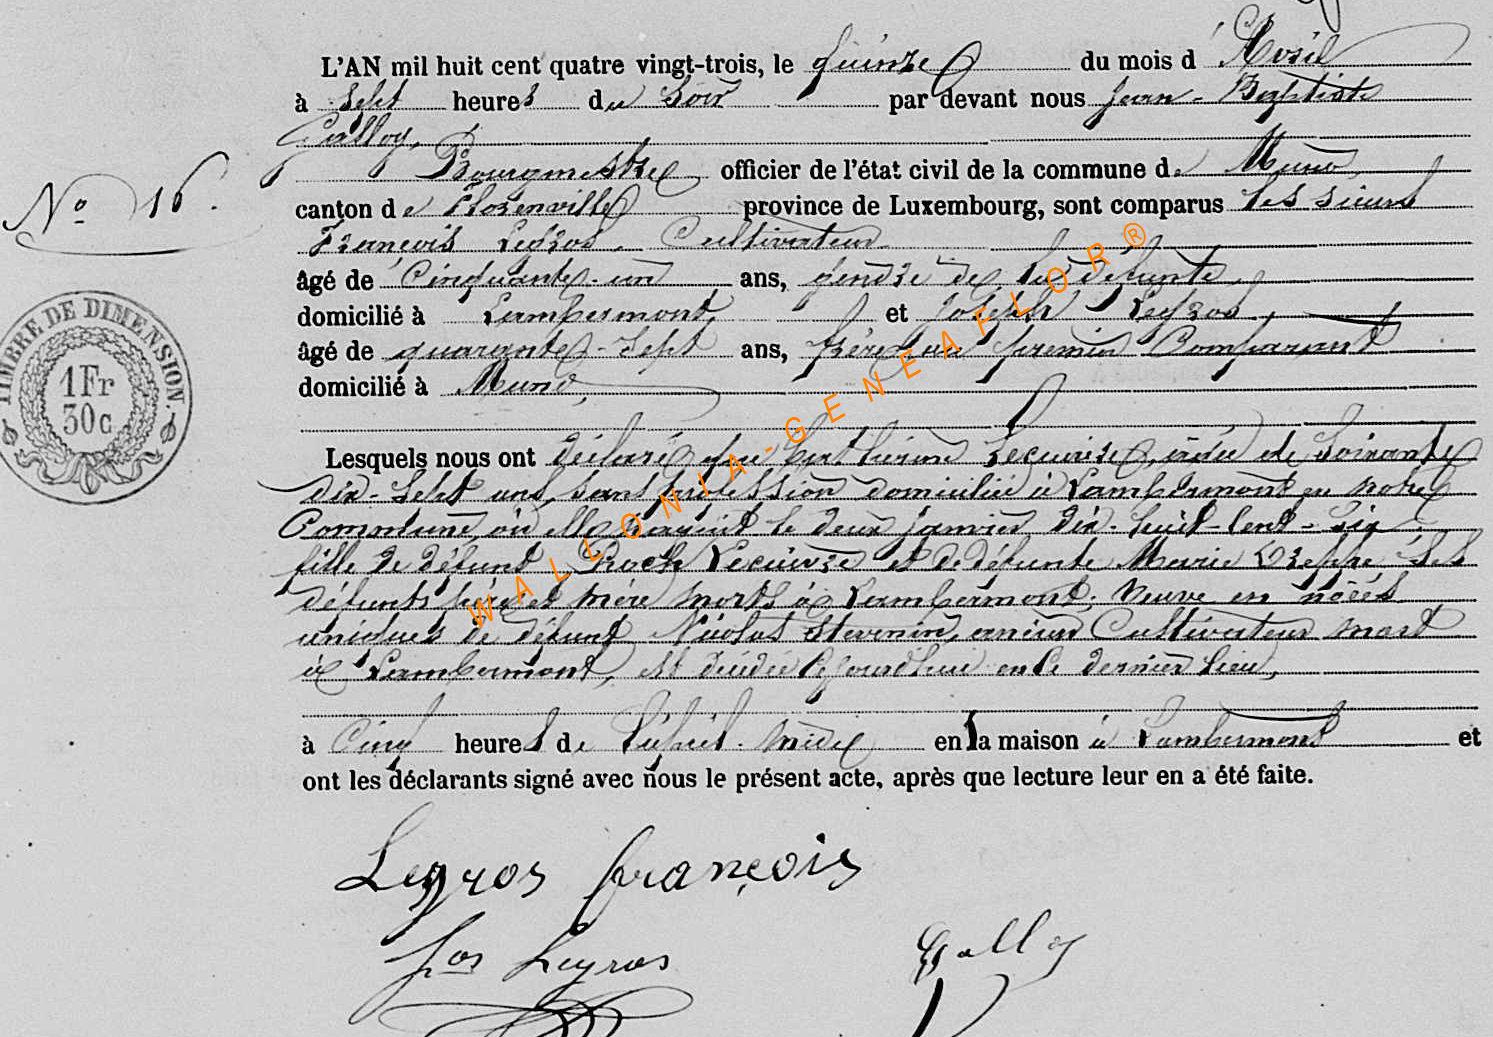 L'AN mil huit cent quatre vingt-trois, le quinze du mois d'Avril
à sept heures du soir par devant nous Jean-Baptiste
Galloy,
Bourgmestre officier de l'état civil de la commune de Muno,
N° 16.
canton de Florenville province de Luxembourg, sont comparus les sieurs
François Legros, Cultivateur
âgé de Cinquante-un ans, gendre de la défunte,
domicilié à Lambermont, et Joseph Legros,
âgé de quarante-sept ans, frère au premier Comparant
domicilié à Muno,
TIMBRE DE DIMENSION.
1Fr
30c
Lesquels nous ont déclaré que Catherine Lecuivre, âgée de soixante
dix-sept ans, sans profession domiciliée à Lambermont en notre
Commune, où elle naquit le deux janvier dix-huit-cent-six
fille de défunt Lecuivre et de défunte Marie ses
défunts père et mère morts à Lambermont; veuve en nôces
uniques de défunt Nicolas Stevenin, ancien Cultivateur mort
à Lambermont, est décédée ce jourd'hui en ce dernier lieu,
à Cinq heures de l'après-midi en la maison à Lambermont et
ont les déclarants signé avec nous le présent acte, après que lecture leur en a été faite.
Legros françois
Jos Legros Galloy
WALLONIA-GENEAFLOR®